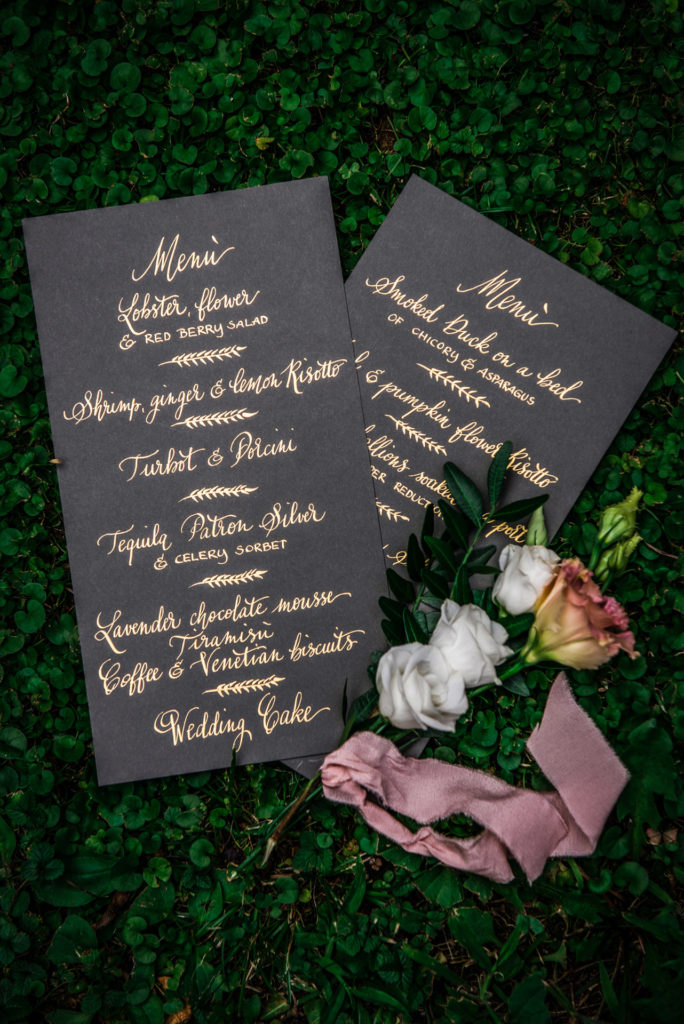 Menù
Lobster, flower
& RED BERRY SALAD
Shrimp, ginger & lemon Risotto
Turbot & Porcini
Tequila Patron Silver
& CELERY SORBET
Lavender chocolate mousse
Tiramisù
Coffee & Venetian biscuits
Wedding Cake
Menù
Smoked Duck on a bed
OF CHICORY & ASPARAGUS
& pumpkin flower Risotto
soaked port